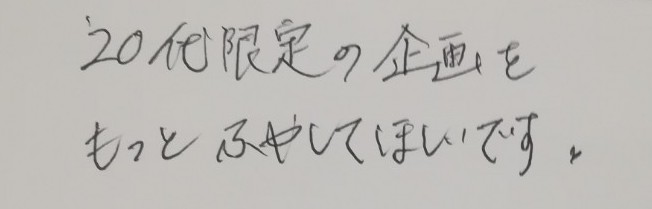 20代限定の企画を
もっとふやしてほしいです。